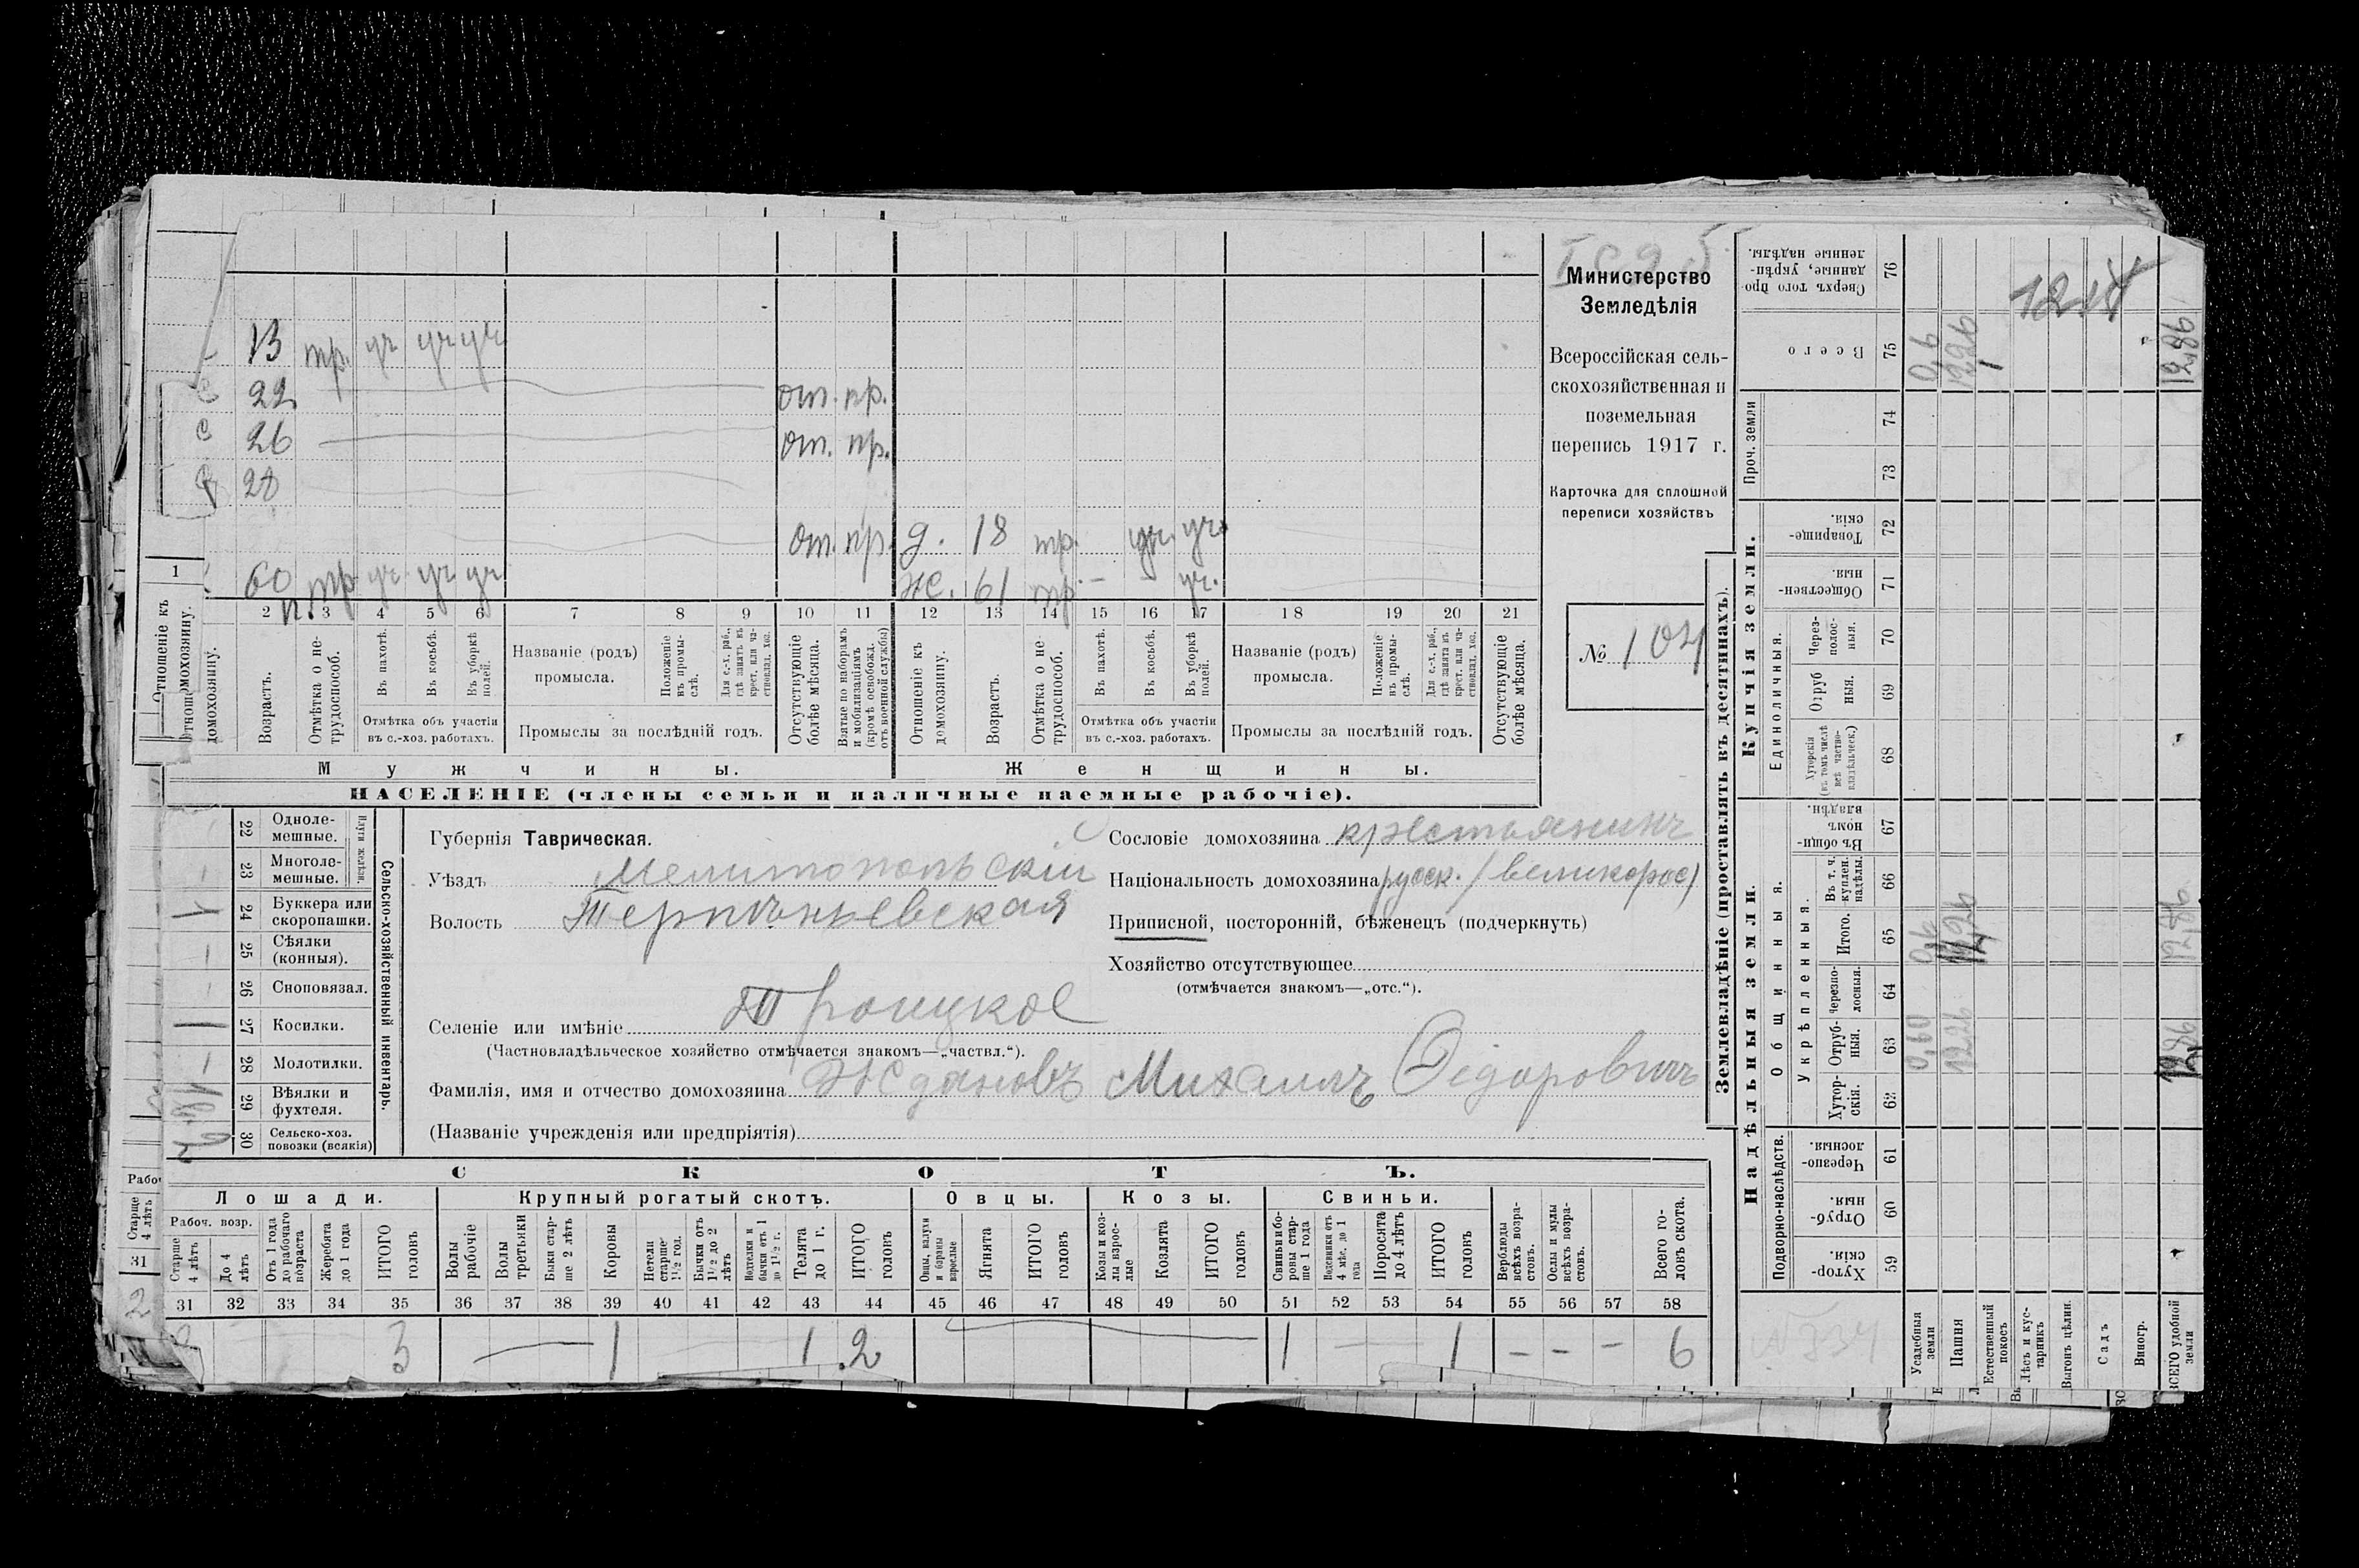 Министерство
Земледѣлія
Всероссійская сель-
скохозяйственная и
поземельная
перепись 1917 г.
Карточка для сплошной
переписи хозяйствъ
№ 104
13 тр. уч уч уч
с 22 от. пр.
с 26 от. пр.
28
от. пр. д. 18 тр. уч. уч.
60 тр уч уч уч ж. 61 тр. – – уч.
п.
1 2 3 4 5 6 7 8 9 10 11 12 13 14 15 16 17 18 19 20 21
Отношеніе къ
домохозяину.
Возрастъ.
Отмѣтка о не-
трудоспособ.
Въ пахотѣ.
Въ косьбѣ.
Въ уборкѣ
полей.
Отмѣтка объ участіи
въ с.-хоз. работахъ.
Названіе (родъ)
промысла.
Положеніе
въ промы-
слѣ.
Для с.-х. раб.,
гдѣ занятъ въ
крест. или ча-
стновлад. хоз.
Промыслы за послѣдній годъ.
Отсутствующіе
болѣе мѣсяца.
Взятые по наборамъ
и мобилизаціямъ
(кромѣ освобожд.
отъ военной службы)
Отношеніе къ
домохозяину.
Возрастъ.
Отмѣтка о не-
трудоспособ.
Въ пахотѣ.
Въ косьбѣ.
Въ уборкѣ
полей.
Отмѣтка объ участіи
въ с.-хоз. работахъ.
Названіе (родъ)
промысла.
Положеніе
въ промы-
слѣ.
Для с.-х. раб.,
гдѣ занята въ
крест. или ча-
стновлад. хоз.
Промыслы за послѣдній годъ.
Отсутствующіе
болѣе мѣсяца.
Мужчины. Женщины.
НАСЕЛЕНІЕ (члены семьи и наличные наемные рабочіе).
Сельско-хозяйственный инвентарь.
Плуги желѣзн.
22 Одноле-
мешные.
23 Многоле-
мешные.
24 Буккера или
скоропашки.
25 Сѣялки
(конныя).
26 Сноповязал.
27 Косилки.
28 Молотилки.
29 Вѣялки и
фухтеля.
30 Сельско-хоз.
повозки (всякія)
Губернія Таврическая.
Уѣздъ Мелитопольскій
Волость Терпѣньевская
Селеніе или имѣніе Троицкое
(Частновладѣльческое хозяйство отмѣчается знакомъ—„частвл.“).
Фамилія, имя и отчество домохозяина Ждановъ Михаилъ Ѳедоровичъ
(Названіе учрежденія или предпріятія)
Сословіе домохозяина крестьянинъ
Національность домохозяина русск. (великорос)
Приписной, посторонній, бѣженецъ (подчеркнуть)
Хозяйство отсутствующее
(отмѣчается знакомъ—„отс.“).
СКОТЪ.
Лошади. Крупный рогатый скотъ. Овцы. Козы. Свиньи.
Рабоч. возр.
Старше
4 лѣтъ
До 4
лѣтъ
Отъ 1 года
до рабочаго
возраста
Жеребята
до 1 года
ИТОГО
головъ
Волы
рабочіе
Волы
третьяки
Быки стар-
ше 2 лѣтъ
Коровы
Нетели
старше
1 1/2 год.
Бычки отъ
1 1/2 до 2
лѣтъ
Нетелки и
бычки отъ 1
до 1 1/2 г.
Телята
до 1 г.
ИТОГО
головъ
Овцы, валухи
и бараны
взрослые
Ягнята
ИТОГО
головъ
Козы и коз-
лы взрос-
лые
Козлята
ИТОГО
головъ
Свиньи и бо-
ровы стар-
ше 1 года
Подсвинки отъ
4 мѣс. до 1
года
Поросята
до 4 лѣтъ
ИТОГО
головъ
Верблюды
всѣхъ возра-
стовъ.
Ослы и мулы
всѣхъ возра-
стовъ.
Всего го-
ловъ скота.
31 32 33 34 35 36 37 38 39 40 41 42 43 44 45 46 47 48 49 50 51 52 53 54 55 56 57 58
3 — 1 1 2 1 — 1 – – – 6
Землевладѣніе (проставлять въ десятинахъ).
Надѣльныя земли. Купчія земли.
Проч. земли
Подворно-наслѣдств.
Общинныя.
Укрѣпленныя.
Единоличныя.
Хутор-
скія.
59
Отруб-
ныя.
60
Черезпо-
лосныя.
61
Хутор-
скія.
62
Отруб-
ныя.
63
Черезпо-
лосныя.
64
Итого.
65
Въ т. ч.
куплен.
надѣлы.
66
Въ общи-
номъ
владѣн.
67
Хуторскія
(въ томъ числѣ
всѣ частно-
владѣльческ.)
68
Отруб
ныя.
69
Через-
полос-
ныя.
70
Обществен-
ныя.
71
Товарище-
скія.
72
73
74
Всего
75
Сверхъ того про
данные, укрѣп-
ленные надѣлы.
76
Усадебныя
земли
0,60
0,6
Пашня
12,26
12,26
Естественный
покосъ
Лѣсъ и кус-
тарникъ
Выгонъ цѣлин.
Садъ
Виногр.
ВСЕГО удобной
земли
12,86
12,86
12,86